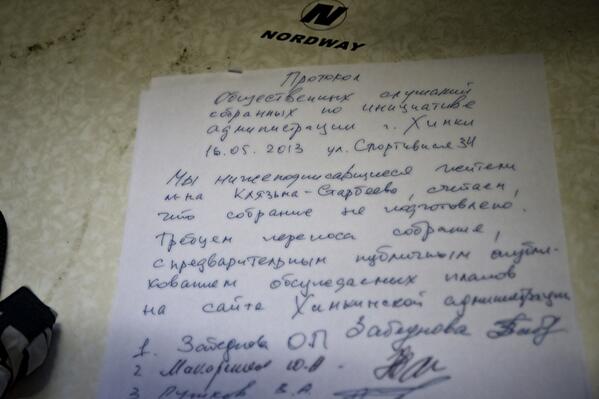 NORDWAY
Протокол
Общественных слушаний
собранных по инициативе
администрации г. Химки
16.05.2013 ул. Спортивная 34
Мы нижеподписавшиеся жители
м-на Клязьма-Старбеево, считаем,
что собрание не подготовлено.
Требуем переноса собрания,
с предварительным публичным опубли-
кованием обсуждаемых планов
на сайте Химкинской администрации
1. О.П.
2 Ю.А.
3 В.А.